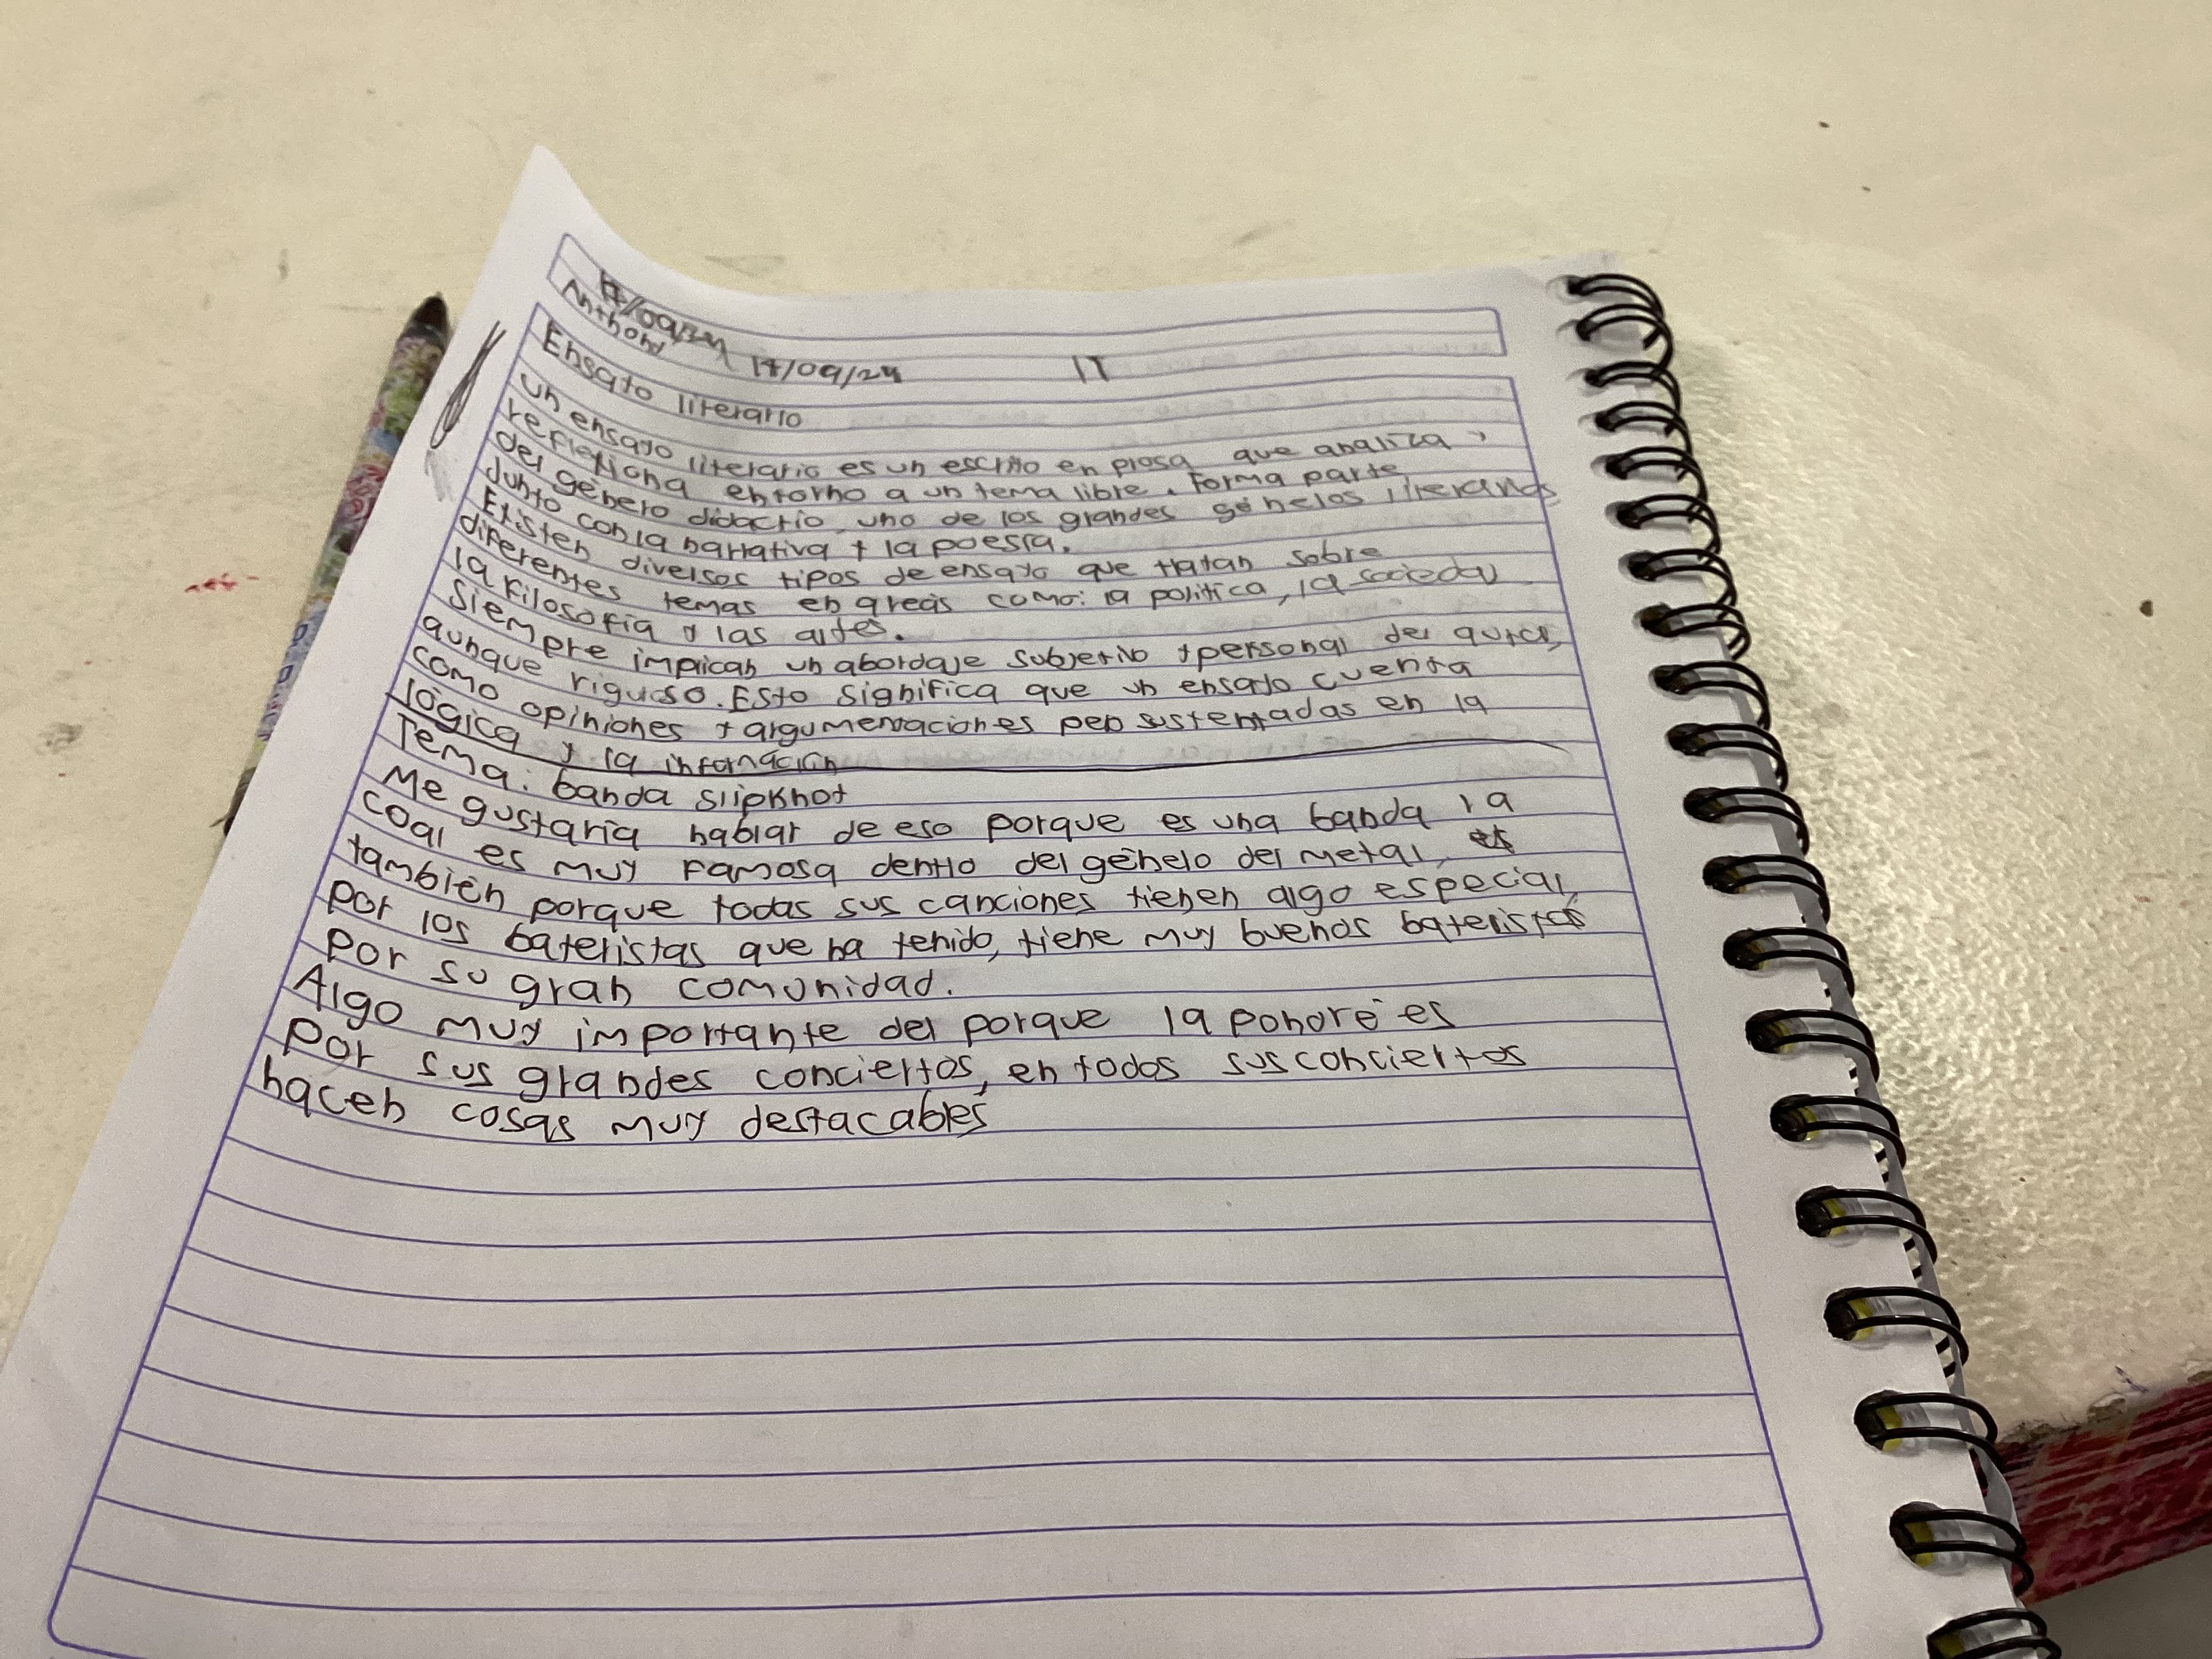 17/09/24
Anthony 17/09/24 1T
Ensayo literario
un ensayo literario es un escrito en prosa que analiza y
reflexiona entorno a un tema libre. Forma parte
del género didactio, uno de los grandes géneros literarios
Junto con la narrativa y la poesía.
Existen diversos tipos de ensayo que tratan sobre
diferentes temas en areas como: la politica, la sociedad
la filosofía y las artes.
Siempre implican un abordaje subjetivo y personal del autor,
aunque riguroso. Esto significa que un ensayo cuenta
como opiniones y argumentaciones pero sustentadas en la
lógica y la información
Tema: banda slipknot
Me gustaría hablar de eso porque es una banda la
coal es muy famosa dentro del género del metal,
también porque todas sus canciones tienen algo especial,
por los bateristas que ha tenido, tiene muy buenos bateristas
por su gran comunidad.
Algo muy importante del porque la pondré es
por sus grandes conciertos, en todos sus conciertos
hacen cosas muy destacables